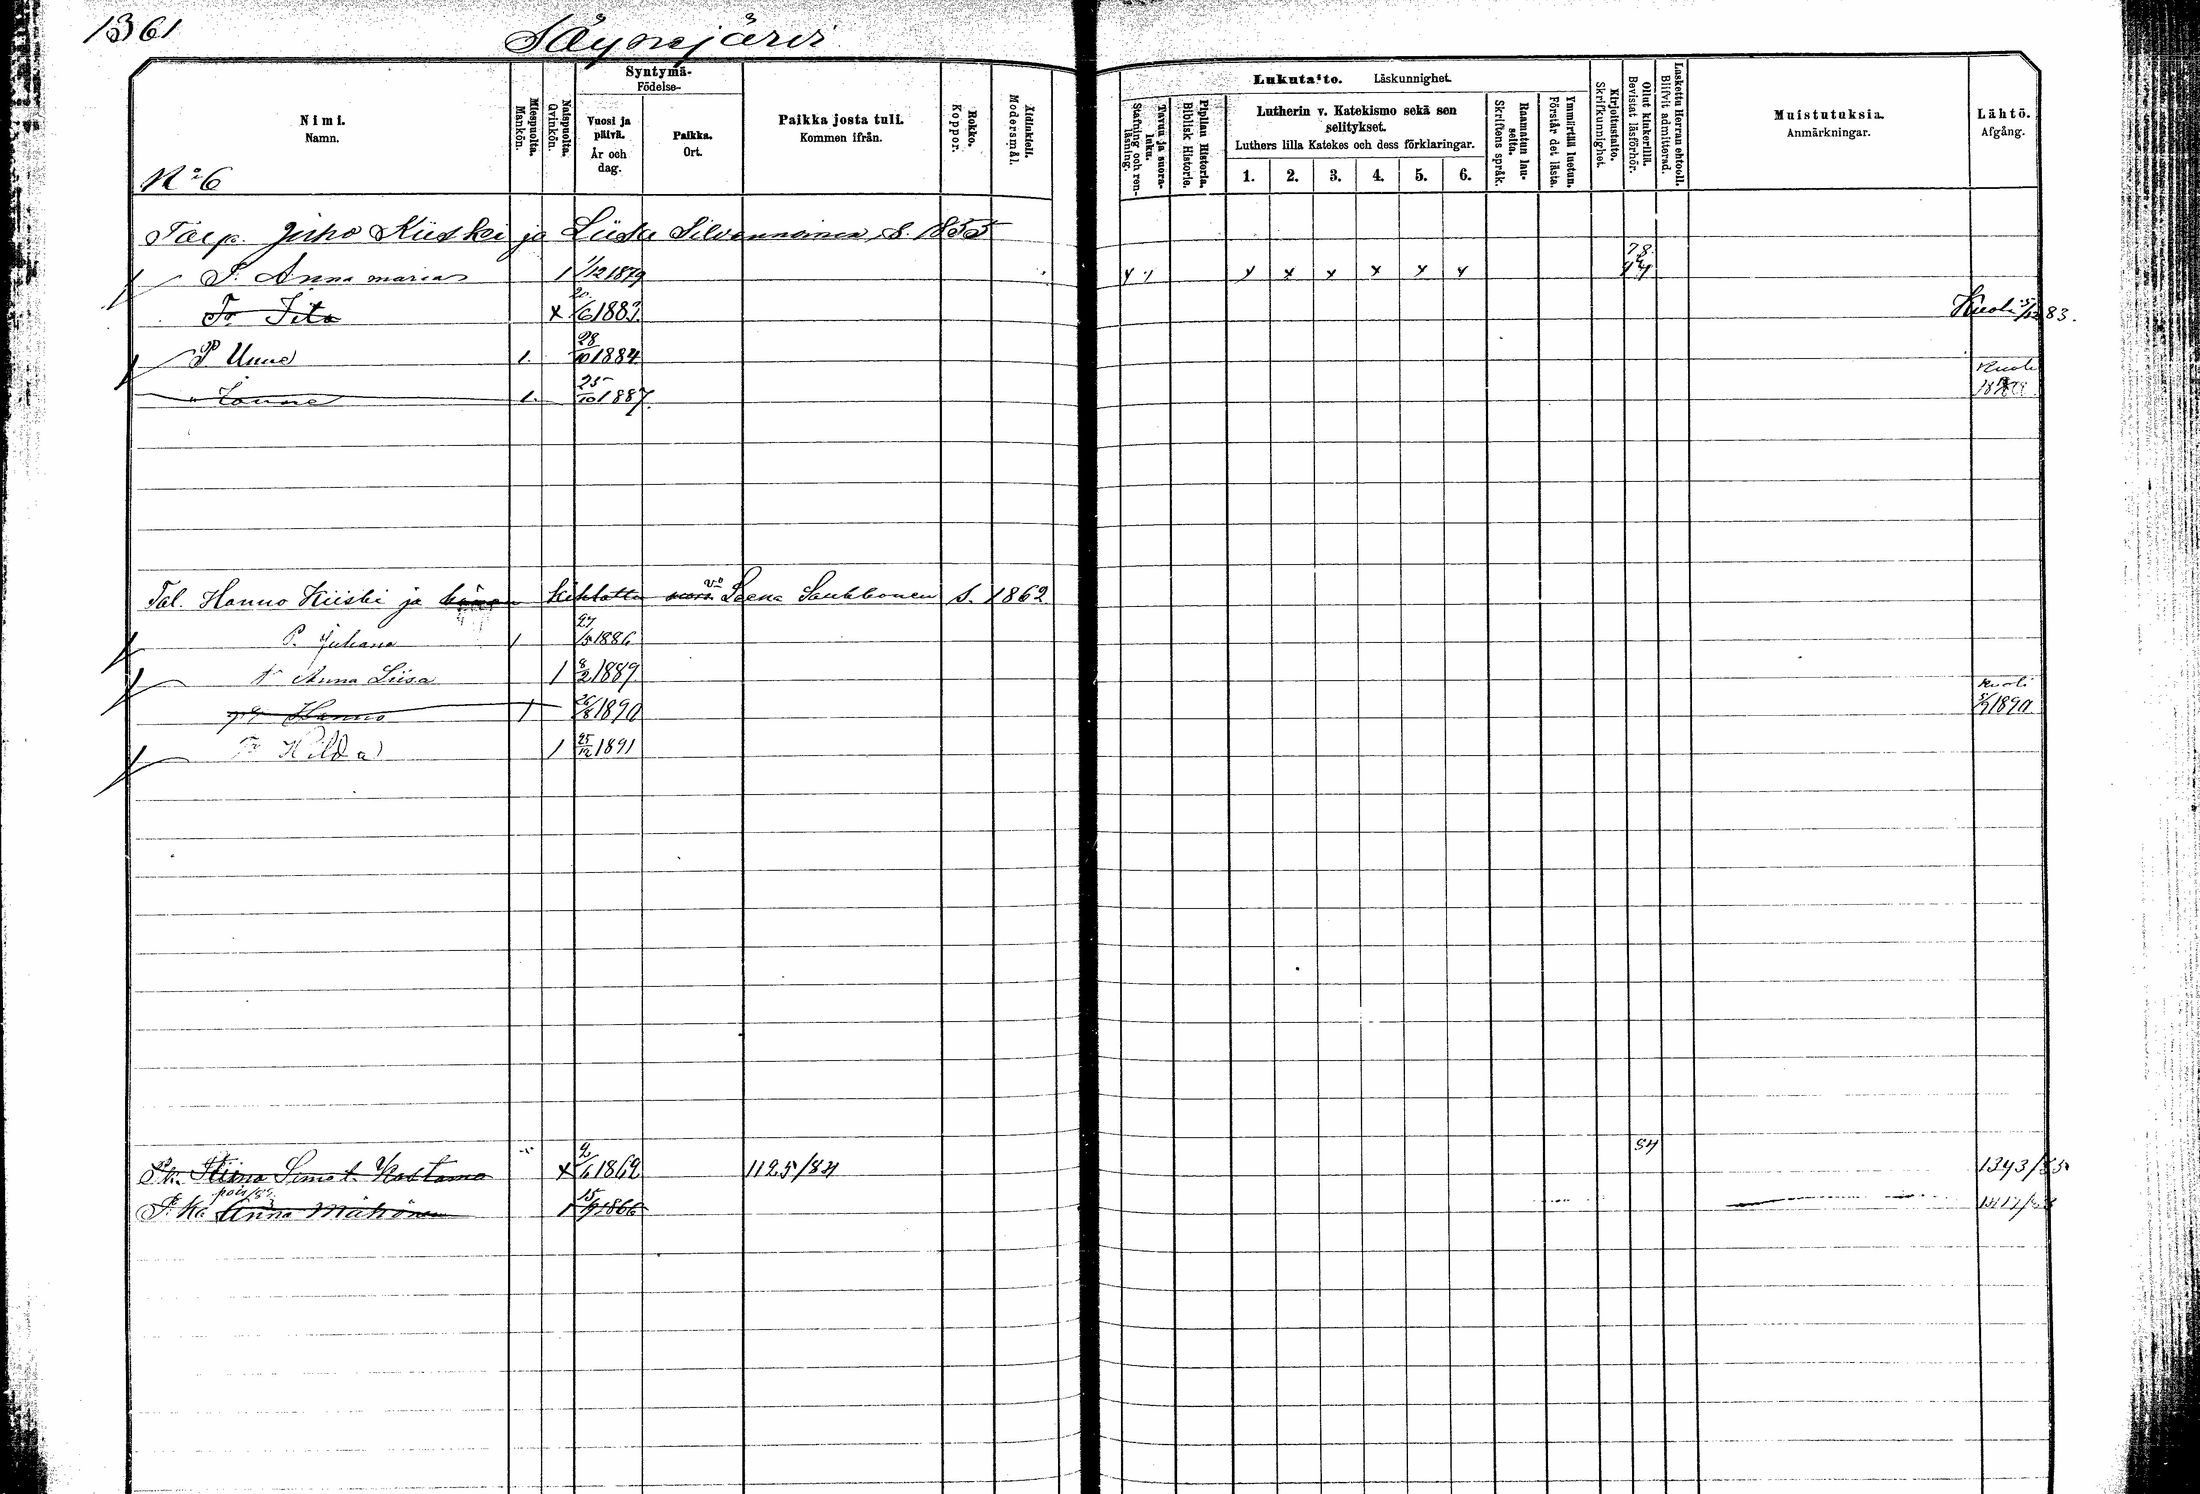 1361
Säynejärvi
Nimi.
Namn.
Miespuolta.
Mankön.
Naispuolta.
Qvinkön.
Syntymä-
Födelse-
Vuosi ja päivä.
År och dag.
Paikka.
Ort.
Paikka josta tuli.
Kommen ifrån.
Rokko.
Koppor.
Äidinkieli.
Modersmål.
Lukutaito. Läskunnighet.
Tavuu ja suora-luku.
Stafning och ren-läsning.
Piplian Historia.
Biblisk Historie.
Lutherin v. Katekismo sekä sen selitykset.
Luthers lilla Katekes och dess förklaringar.
1. 2. 3. 4. 5. 6.
Raamatun lau-seita.
Skriftens språk.
Ymmärtää luetun.
Förstår det lästa.
Kirjoitustaito.
Skrifkunnighet.
Ollut kinkerillä.
Bevistat läsförhör.
Laskettu Herran ehtooll.
Blifvit admitterad.
Muistutuksia.
Anmärkningar.
Lähtö.
Afgång.
No 6
Juho Kiiski ja Liisa Silvennoinen s. 1855
Anna Maria 1 1/12 1879 x x x x x x
T. x 20/6 1883 Kuoli 5/12 83.
P 1. 28/10 1884
" 1. 25/10 1887. Kuoli
Tal. Hanno Kiiski ja Leena Saukkonen s. 1862
P. Juhana 1 27/5 1886
Tr Anna Liisa 1 8/2 1889
Hanno 1 26/8 1890 Kuoli 5/9 1890
Tr Hilda 1 25/12 1891
x 2/6 1862 1125/84 84 1343/85
Anna 1 15/9 1866